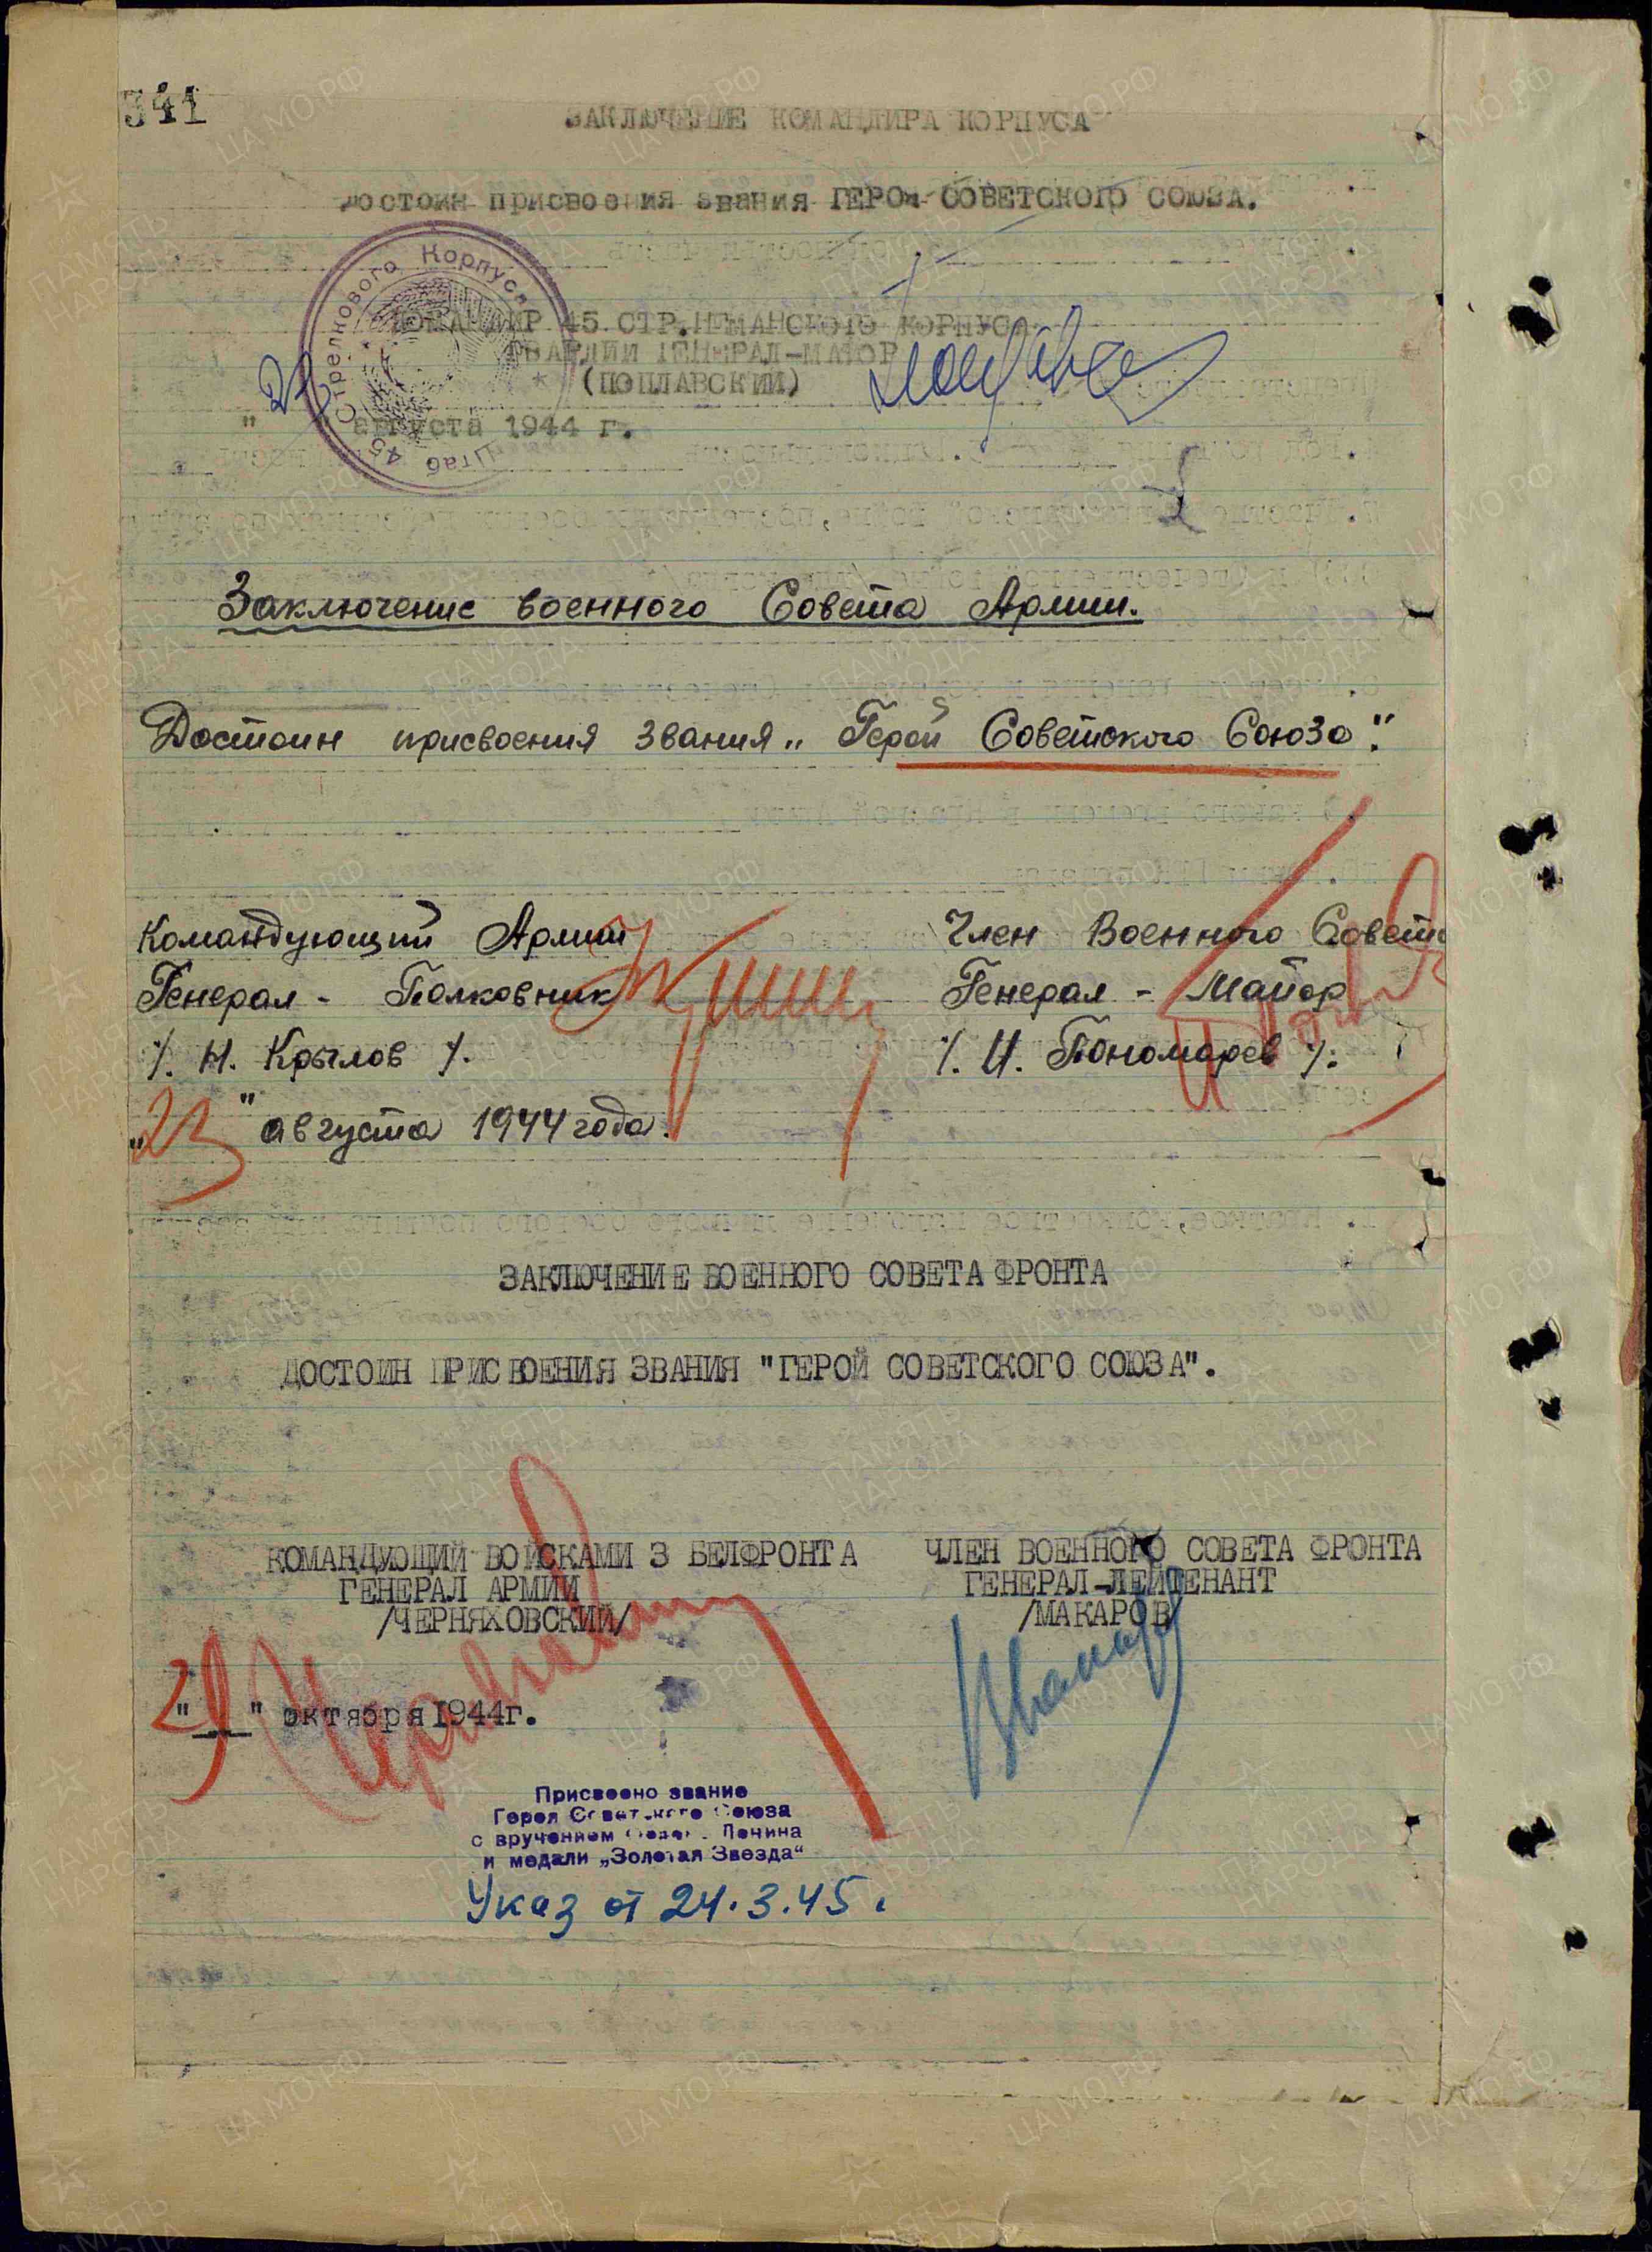 341
ЗАКЛЮЧЕНИЕ КОМАНДИРА КОРПУСА
достоин присвоения звания ГЕРОя СОВЕТСКОГО СОЮЗА.
Штаб 45 Стрелкового Корпуса
КОМАНДИР 45 СТР.НЕМАНСКОГО КОРПУСА
ГВАРДИИ ГЕНЕРАЛ-МАЙОР
(ПОПЛАВСКИЙ)
" августа 1944 г.
Заключение военного Совета Армии.
Достоин присвоения звания „Герой Советского Союза".
Командующий Армией
Генерал - Полковник
/. Н. Крылов /.
„23" августа 1944 года.
Член Военного Совета
Генерал - Майор
/. И. Пономарев /.
ЗАКЛЮЧЕНИЕ ВОЕННОГО СОВЕТА ФРОНТА
ДОСТОИН ПРИСВОЕНИЯ ЗВАНИЯ "ГЕРОЙ СОВЕТСКОГО СОЮЗА".
КОМАНДУЮЩИЙ ВОЙСКАМИ 3 БЕЛФРОНТА
ГЕНЕРАЛ АРМИИ
/ЧЕРНЯХОВСКИЙ/
ЧЛЕН ВОЕННОГО СОВЕТА ФРОНТА
ГЕНЕРАЛ-ЛЕЙТЕНАНТ
/МАКАРОВ/
" " октября 1944г.
Присвоено звание
Героя Советского Союза
с вручением Орден. Ленина
и медали „Золотая Звезда"
Указ от 24.3.45.